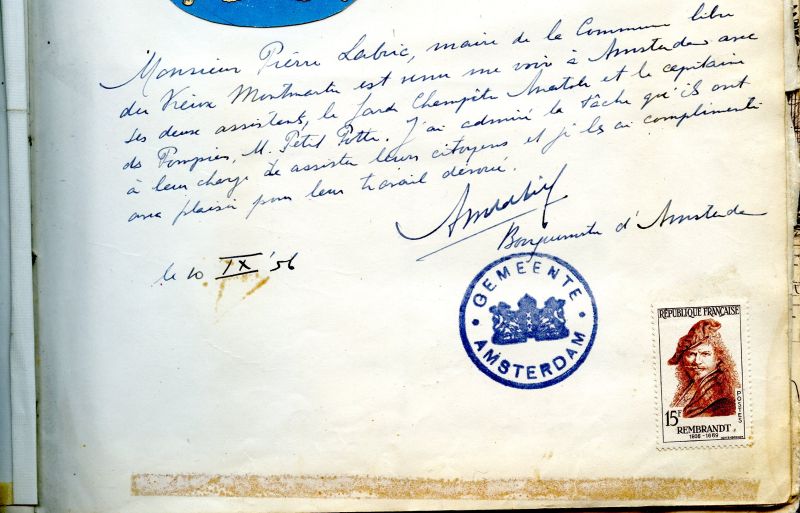 Monsieur Pierre Labric, maire de la Commune libre
du Vieux Montmartre est venu me voir à Amsterdam avec
ses deux assistents, le Garde Champêtre Anatole et le capitaine
des Pompiers, M. Petit Potte. J'ai admiré la tâche qu'ils ont
à leur charge de assister leurs citoyens et je les ai complimenté
avec plaisir pour leur travail dévoué.
Bourguemestre d'Amsterdam
le 10 IX '56
GEMEENTE
AMSTERDAM
RÉPUBLIQUE FRANÇAISE
15F
POSTES
REMBRANDT
1606-1669